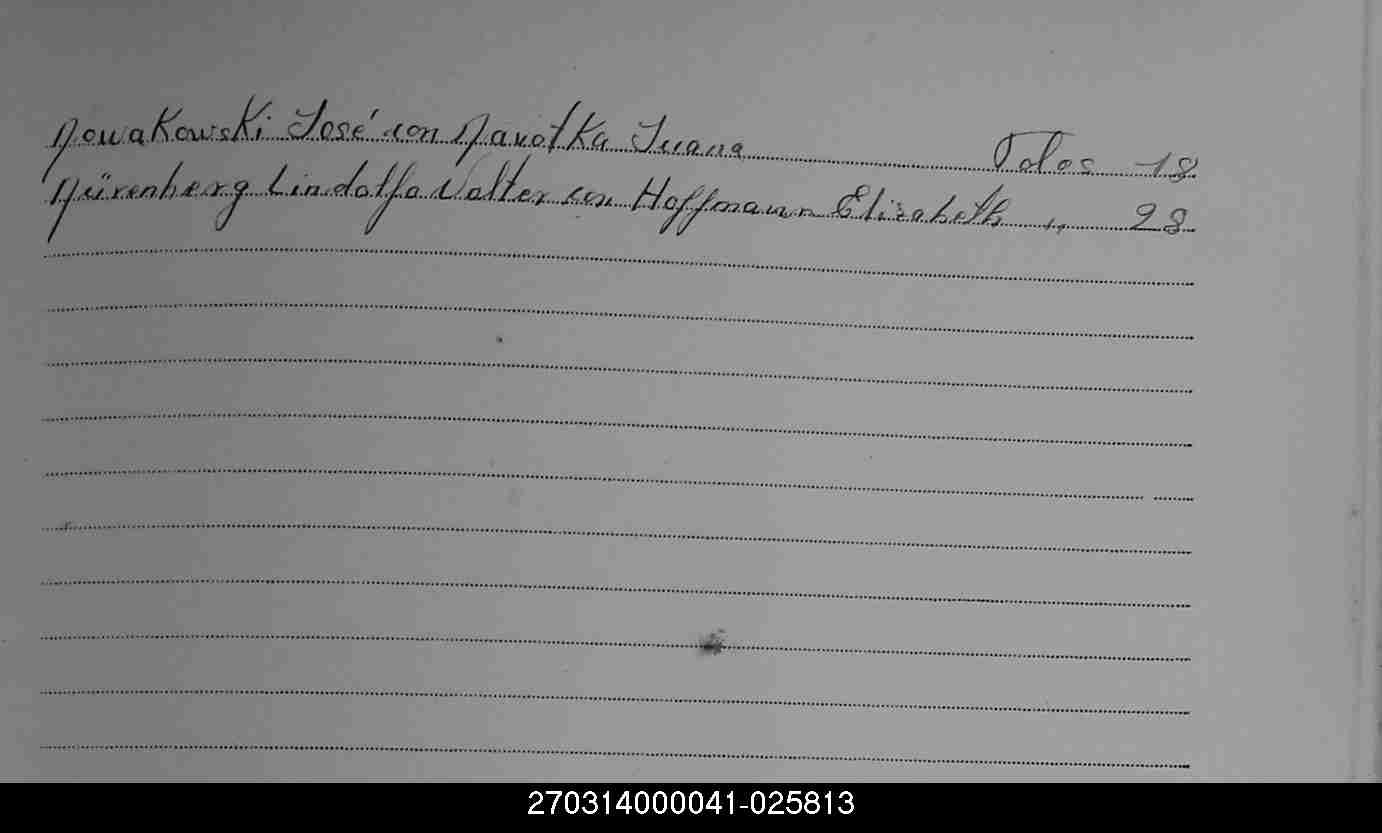 Nowakowski José con Navotka Juana Folos 18
Nürenberg Lindolfo Valter con Hoffmann Elizabeth " 28
270314000041-025813